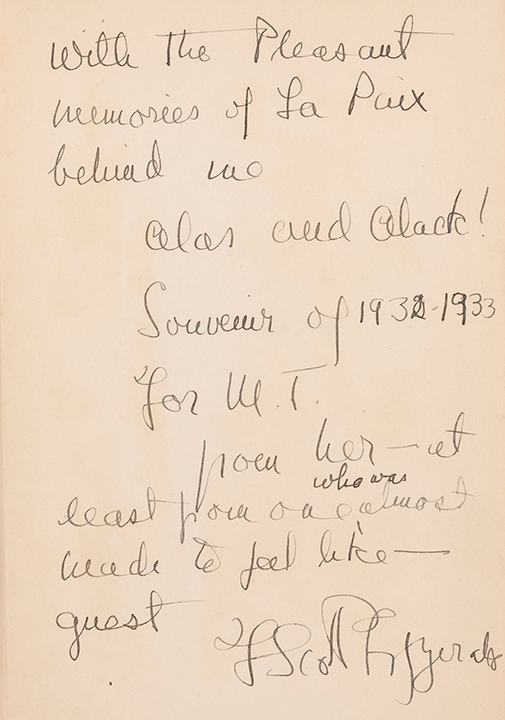 With the Pleasant
memories of La Paix
behind me
alas and alack!
Souvenir of 1932-1933
For M.T.
from her — at
who was
least from one almost
made to feel like —
guest
F Scott Fitzgerald